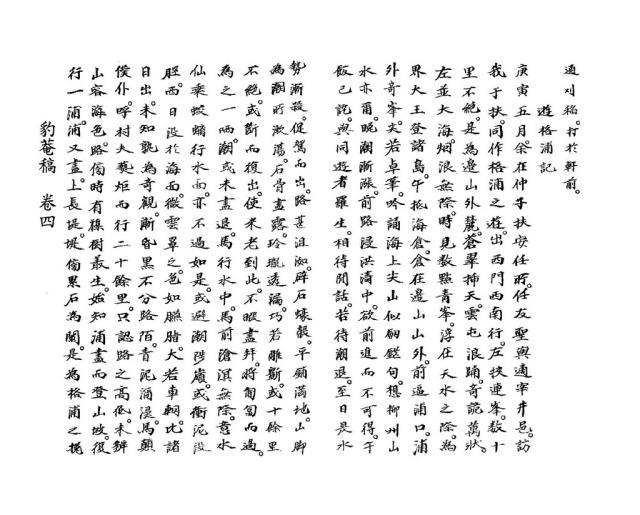 適刈稻。打於軒前。
遊格浦記
庚寅五月。余在仲子扶安任所。任友聖與適宰井邑。訪
我于扶。同作格浦之遊。出西門西南行。左扶連峯。數十
里不絶。是為邊山外麓。蒼翠揷天。雲屯浪踊。奇詭萬狀。
左並大海。烟浪無際。時見數點青峯。浮在天水之際。為
界大王登諸島。午抵海倉。倉在邊山山外。前逼浦口。浦
外奇峯尖若卓筆。吟誦海上尖山似劒鋩句。想柳州山
水亦爾。晩潮漸漲。前路浸洪濤中。欲前進而不可得。午
飯已訖。與同遊者羅坐。相待閒話。若待潮退。至日昃水
勢漸殺。促駕而出。路甚沮洳。碎石蠔殼。平鋪滿地。山脚
為潮所漱蕩。石骨盡露。玲瓏透漏。巧若雕斲。或十餘里
不絶。或斷而復出。使米老到此。不暇盡拜。將匍匐而過。
為之一哂。潮或未盡退。馬行水中。馬前滄溟無際。意水
仙乘蛟螭行水面。亦不過如是。或避潮陟巘。或衝泥沒
脛。西日沒於海面。微雲罩之。色如臙脂。大若車輞。比諸
日出。未知孰為奇觀。漸昏黑不分路陌。青泥滑浸。馬顚
僕仆。呼村夫爇炬西行二十餘里。只認路之高低。未辨
山容海色。路傍時有櫟樹叢生。始知浦盡而登山坡。復
行一浦。浦又盡。上長堤。堤傍累石為關。是為格浦之
豹菴稿 卷四